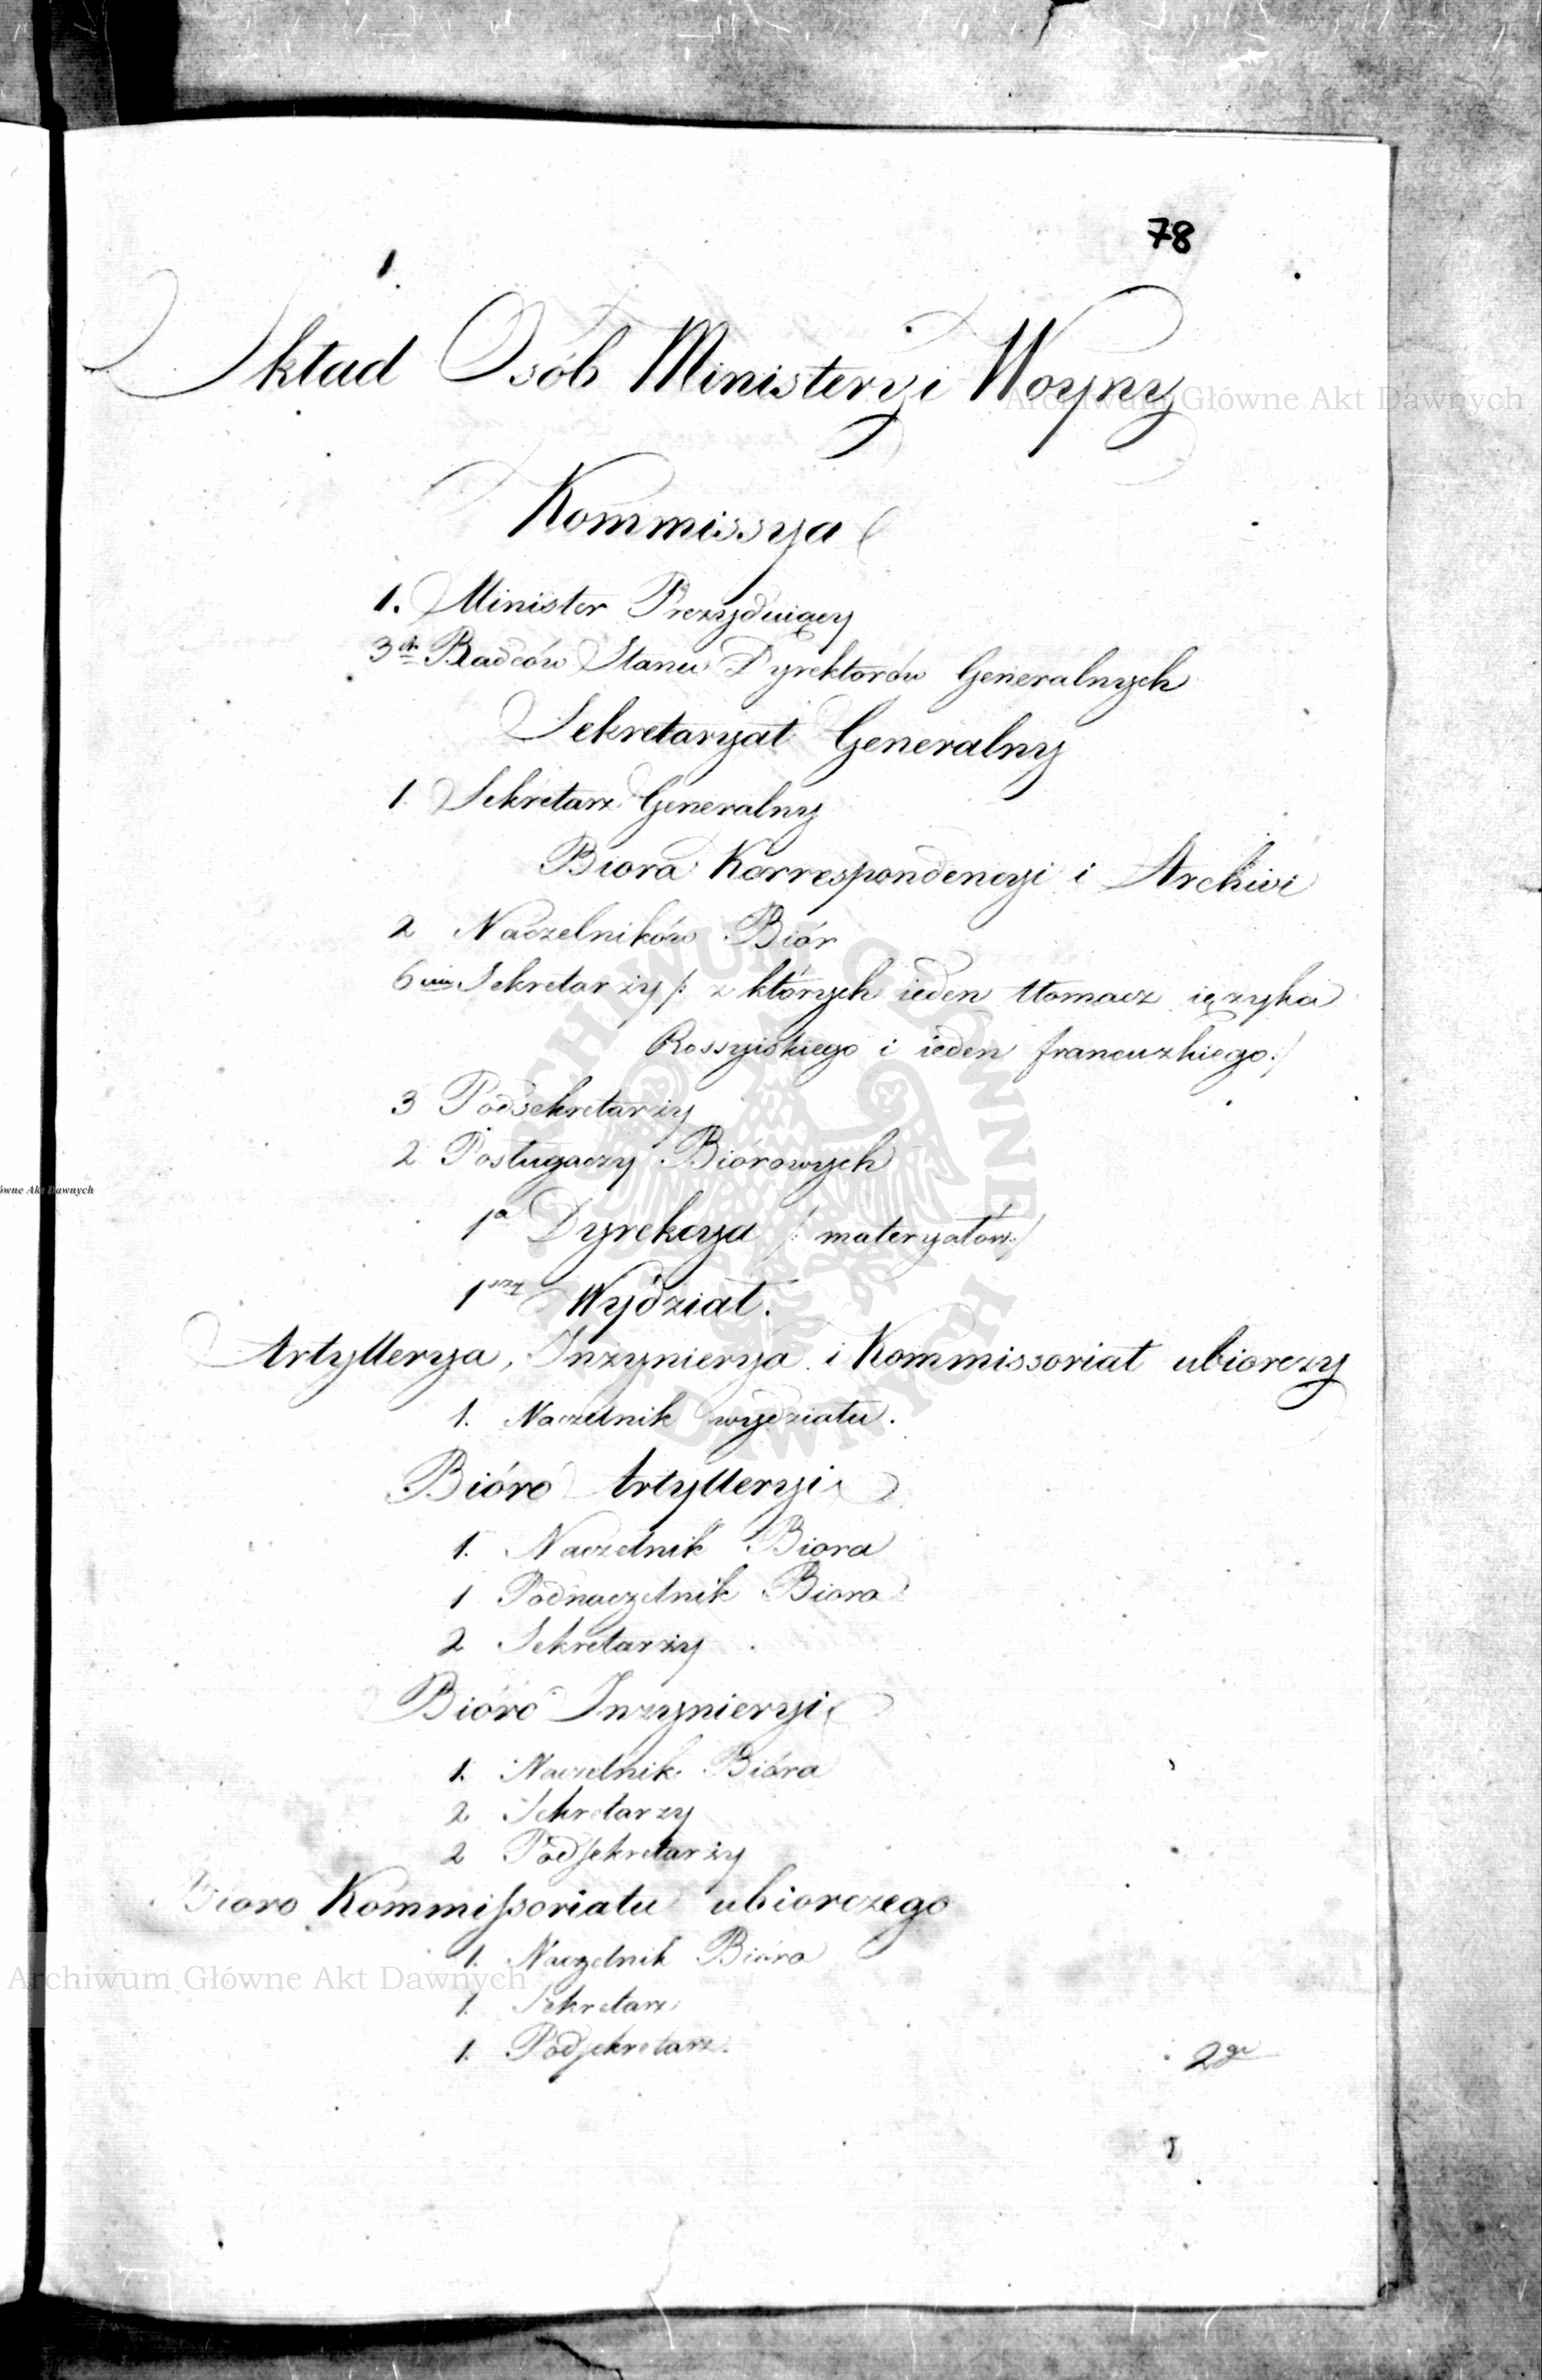 78
1.
Skład Osób Ministeryi Woyny
Archiwum Główne Akt Dawnych
Kommissya
1. Minister Prezyduiący
3ch Radców Stanu Dyrektorów Generalnych
Sekretaryat Generalny
1 Sekretarz Generalny
Biora Korrespondencyi i Archivi
2 Naczelników Biór
6ciu Sekretarzy /: z których ieden tłomacz ięzyka
Rossyiskiego i ieden francuzkiego :/
3 Podsekretarzy
2 Posługaczy Biórowych
ówne Akt Dawnych
1a Dyrekcya /: materyałów :/
1szy Wydział.
Artyllerya, Inzynierya i Kommissoriat ubiorczy
1. Naczelnik wydziału.
Bióro Artylleryi
1. Naczelnik Biora
1 Podnaczelnik Biora
2 Sekretarzy
Bióro Inzynieryi
1. Naczelnik Bióra
2 Sekretarzy
2 Podsekretarzy
Bioro Kommissoriatu ubiorczego
1. Naczelnik Bióra
Archiwum Główne Akt Dawnych
1. Sekretarz
1. Podsekretarz.
2gi
ARCHIWUM GŁÓWNE AKT DAWNYCH